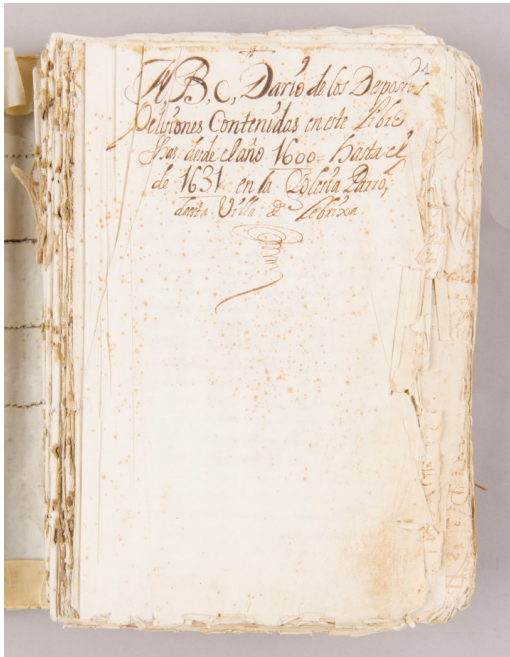 A, B, C, Dario de los Desposo
Velaçiones Contenidas en este Libro
desde el año 1600 = hasta el
de 1631 en la Yglecia Parro,
desta Villa de Lebrixa